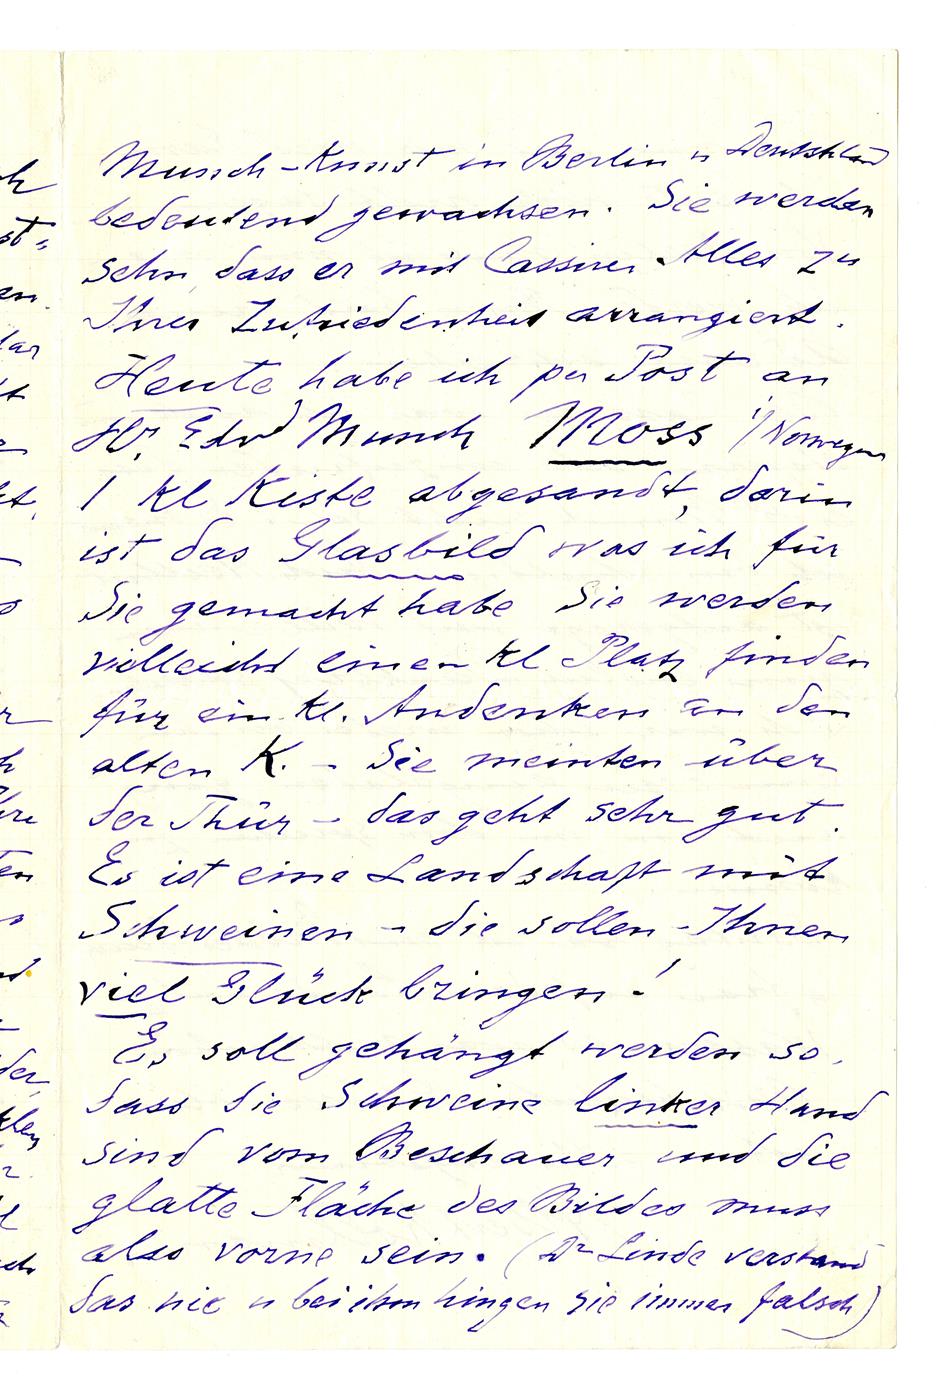 Munch-Kunst in Berlin u Deutschland
bedeutend gewachsen. Sie werden
sehn, dass er mit Cassirer Alles zu
Ihrer Zufriedenheit arrangiert.
Heute habe ich per Post an
Hr. Edvd Munch Moss i/Norwegen
1 kl Kiste abgesandt, darin
ist das Glasbild was ich für
Sie gemacht habe Sie werden
vielleicht einen kl Platz finden
für ein kl. Andenken an den
alten K. – Sie meinten über
der Thür – das geht sehr gut.
Es ist eine Landschaft mit
Schweinen – die sollen Ihnen
viel Glück bringen!
Es soll gehängt werden so,
dass die Schweine linker Hand
sind vom Beschauer und die
glatte Fläche des Bildes muss
also vorne sein. (Dr Linde verstand
das nie u bei ihm hingen sie immer falsch)